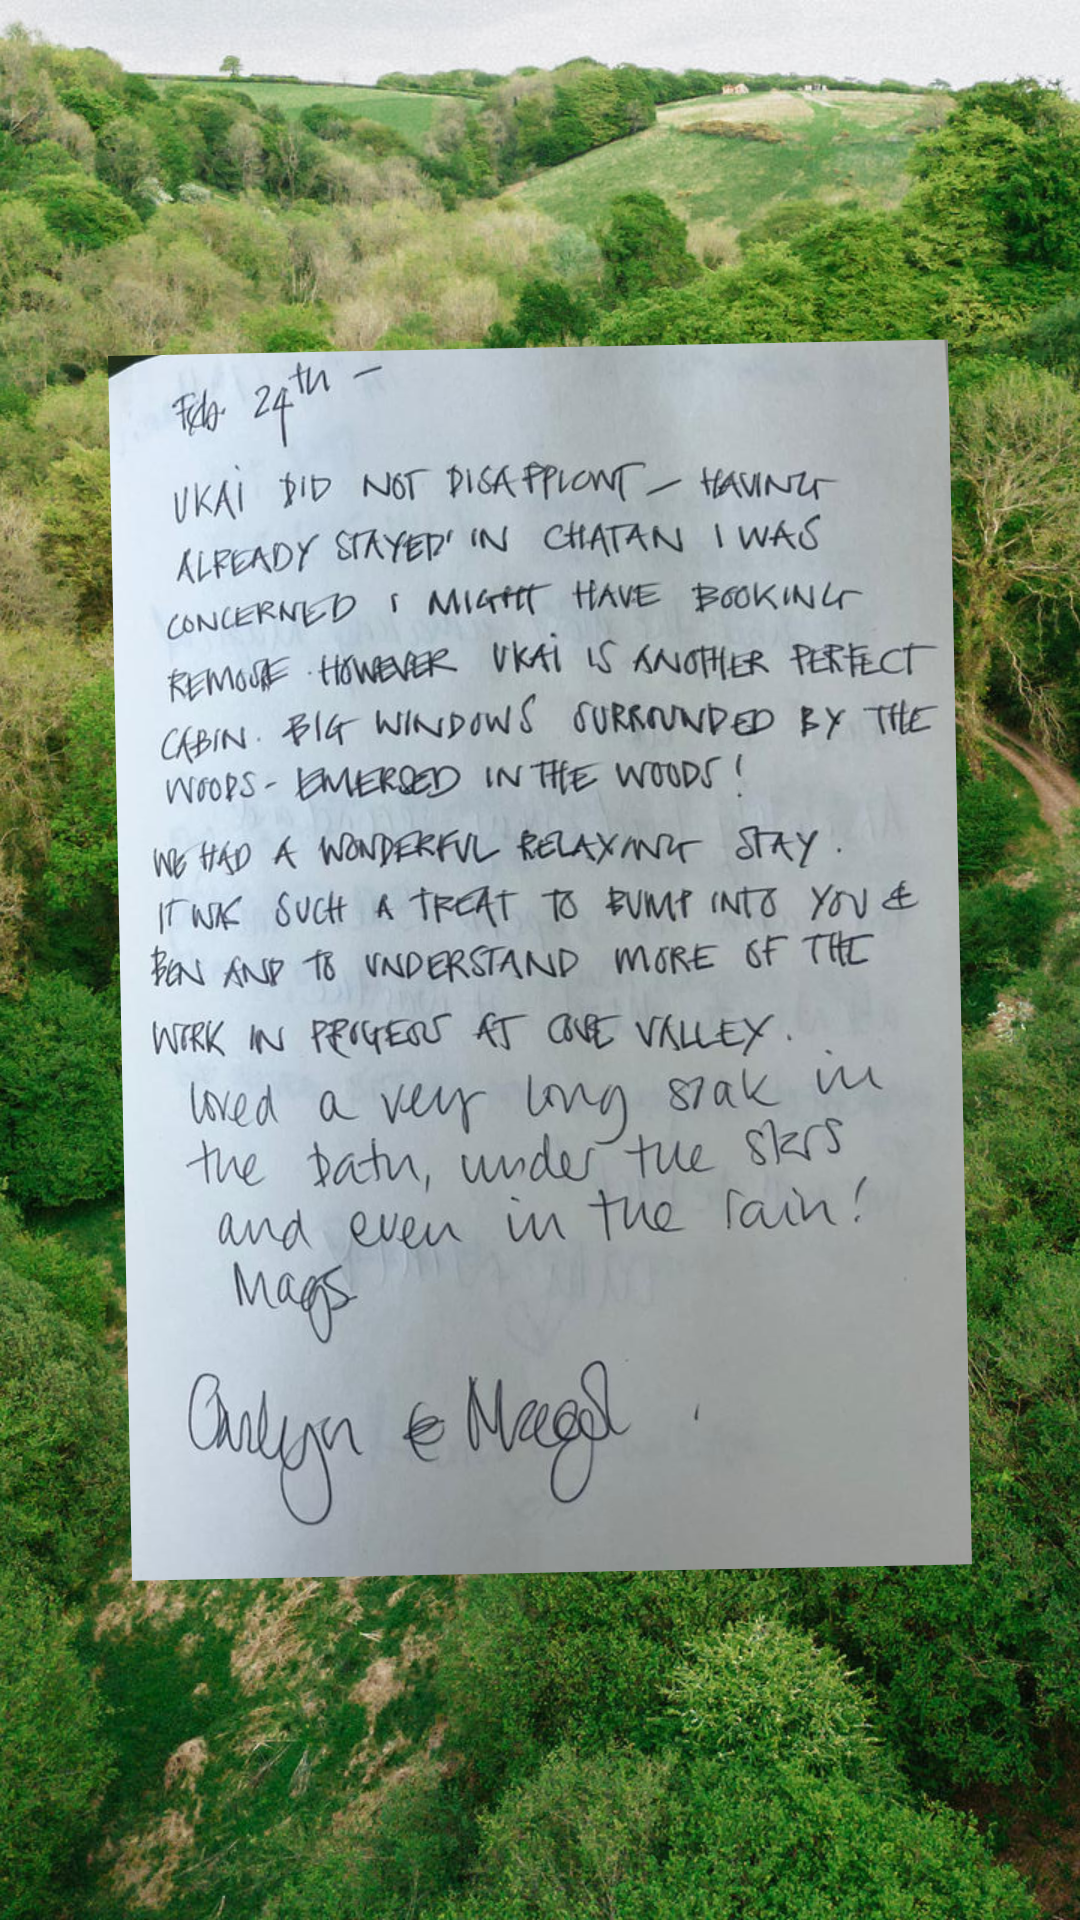 Feb. 24th –
UKAI DID NOT DISAPPIONT – HAVING
ALREADY STAYED IN CHATAN I WAS
CONCERNED I MIGHT HAVE BOOKING
REMOSE. HOWEVER UKAI IS ANOTHER PERFECT
CABIN. BIG WINDOWS SURROUNDED BY THE
WOODS – EMERSED IN THE WOODS!
WE HAD A WONDERFUL RELAXING STAY.
IT WAS SUCH A TREAT TO BUMP INTO YOU &
BEN AND TO UNDERSTAND MORE OF THE
WORK IN PROGESS AT COVE VALLEY.
loved a very long soak in
the bath, under the
and even in the rain!
Mags
Carlyn & Mags